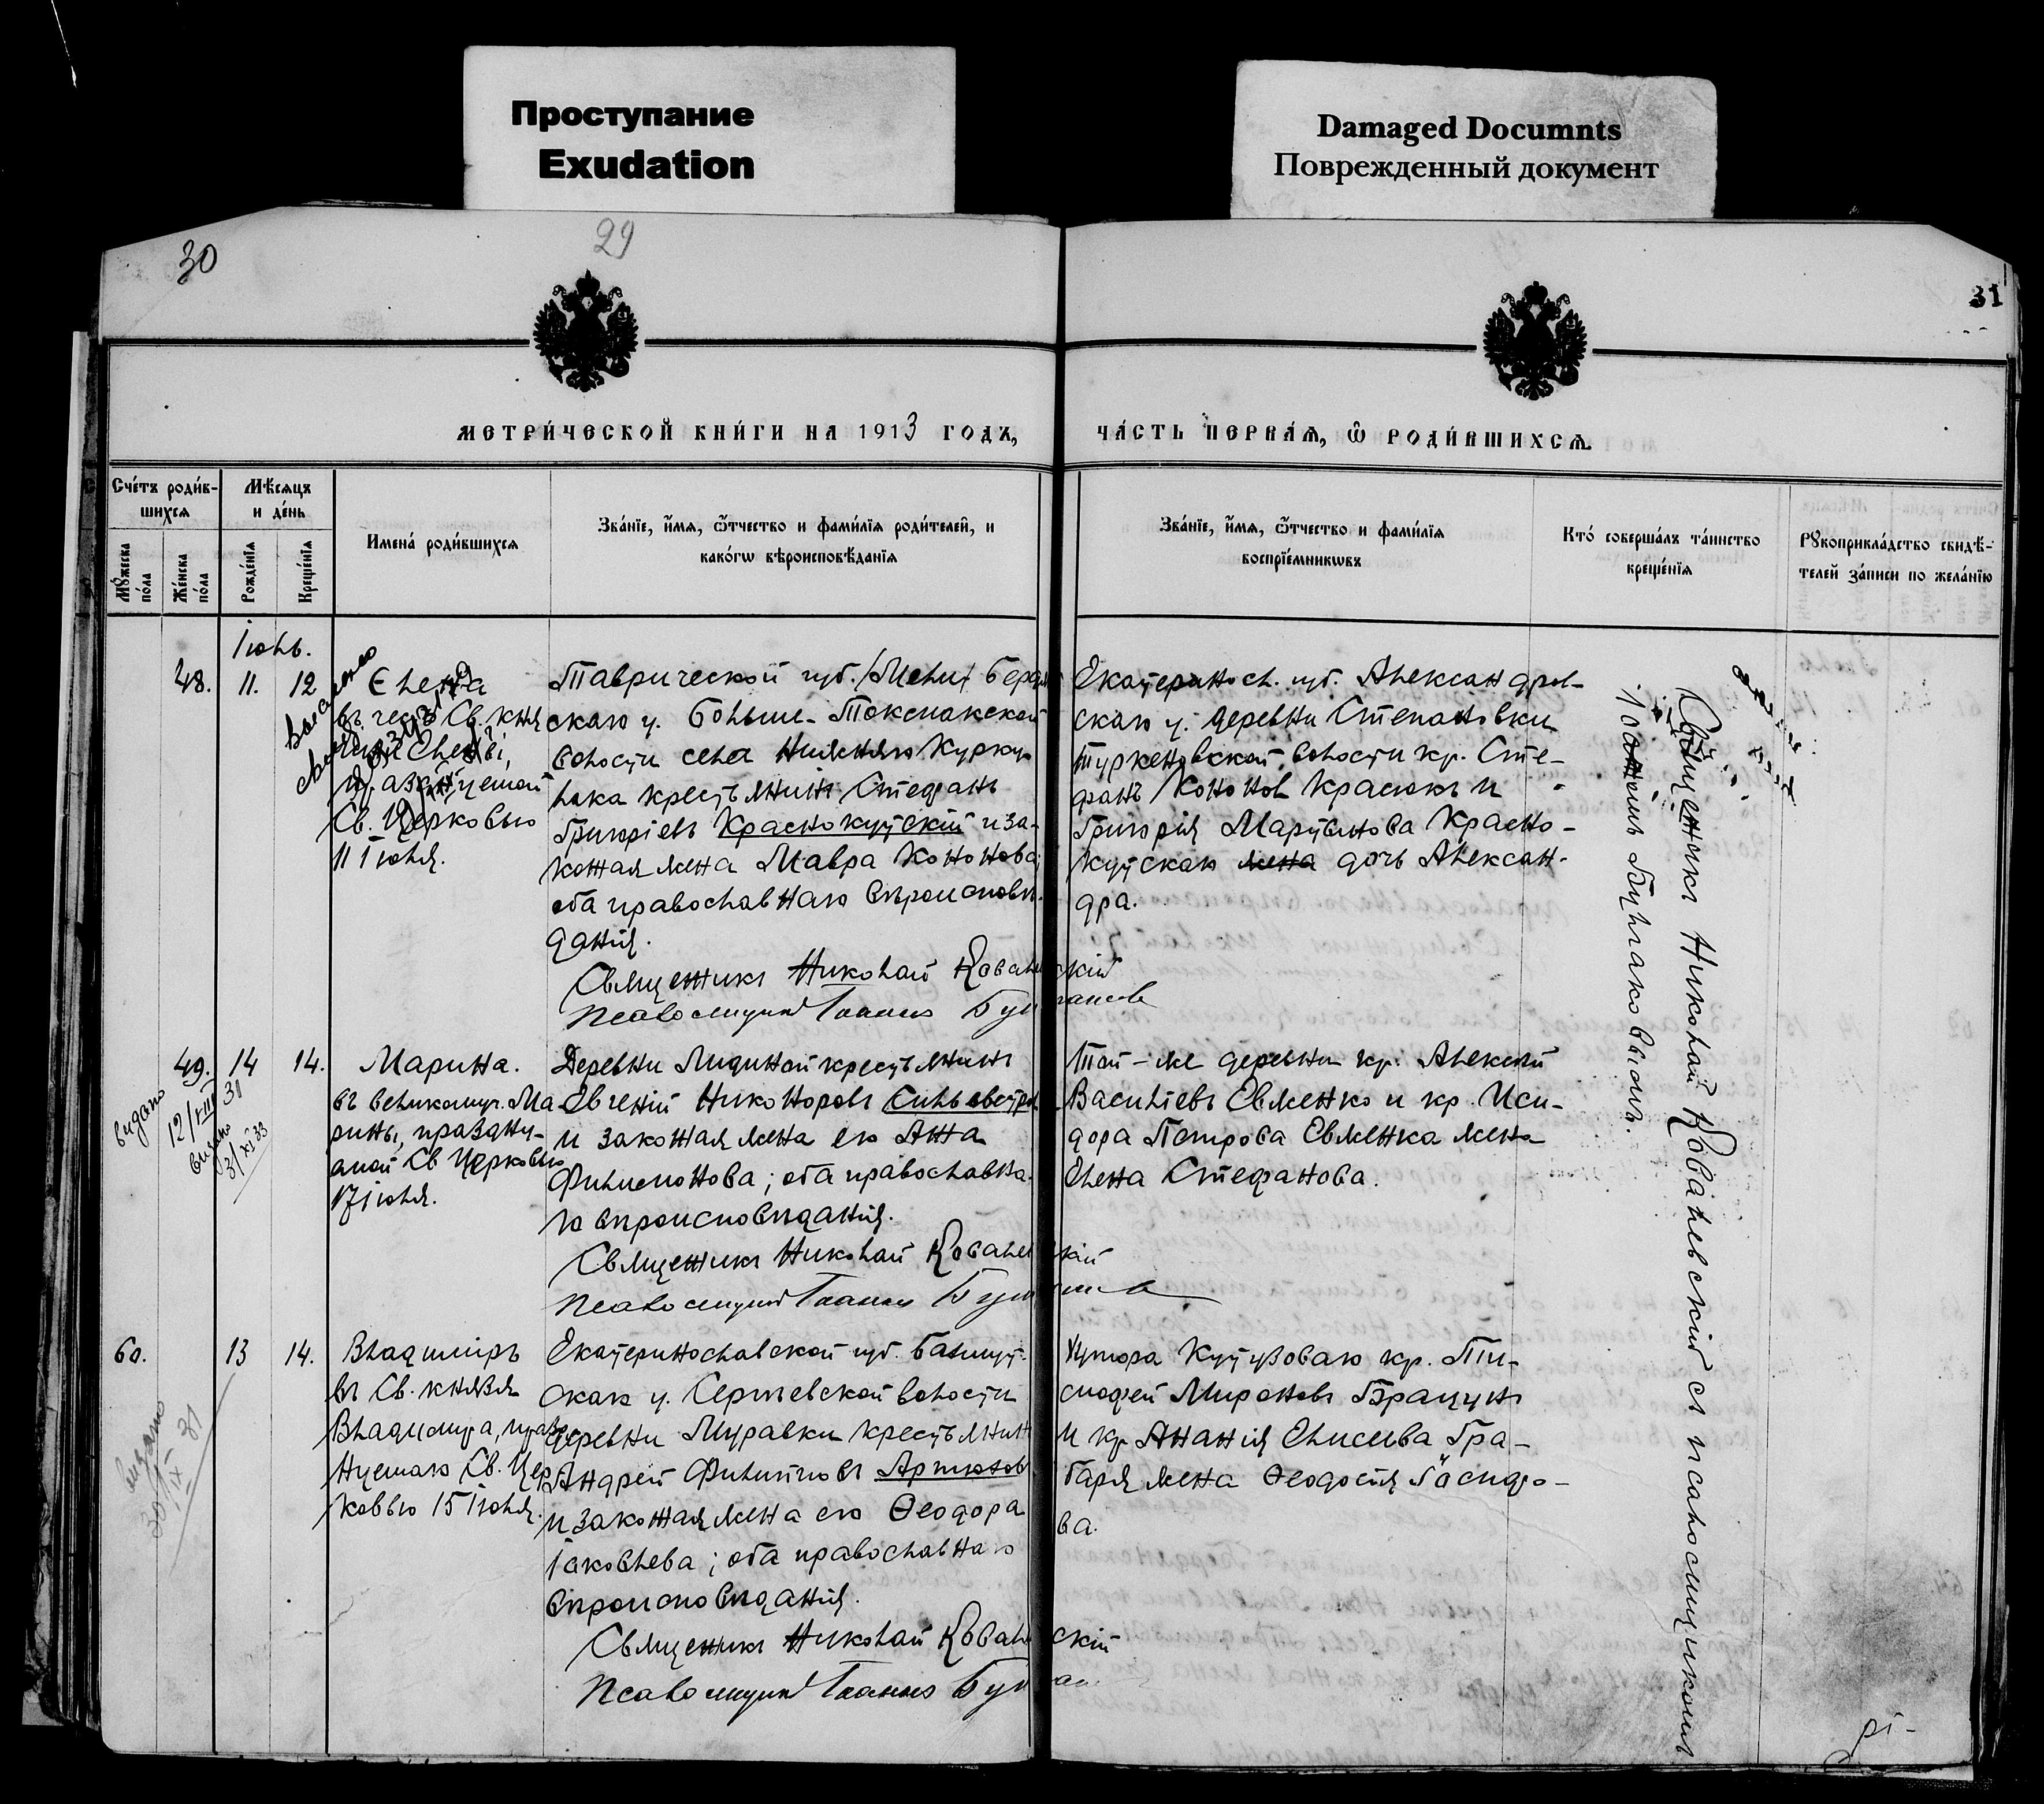 Проступание
Exudation
Damaged Documnts
Поврежденный документ
30
29
31
МЕТРИ́ЧЕСКОЙ КНИ́ГИ НА 1913 ГОДЪ,
ЧА́СТЬ ПЕРВАѦ, Ѽ РОДИ́ВШИХСѦ.
Сче́тъ роди́в-
шихсѧ
Мꙋжеска
по́ла
Же́нска
по́ла
Мѣ́сѧцъ
и де́нь
Рожде́нїѧ
Креще́нїѧ
Имена́ роди́вшихсѧ
Зва́нїе, и҆́мѧ, ѻ҆́тчество и фами́лїѧ роди́телей, и
како́гѡ вѣроисповѣ́данїѧ
Зва́нїе, и҆́мѧ, ѻ҆́тчество и фами́лїѧ
воспрїе́мникѡвъ
Кто́ соверша́лъ та́инство
креще́нїѧ
Рꙋкоприкла́дство свидѣ́-
телей за́писи по жела́нїю
Іюль.
48.
11.
12
Елена
въ честь Св. кня
гини Елены,
празднуемой
Св. Церковью
11 іюля.
Таврической губ. /Мели/ Бердян
скаго у. Больше-Токмакской
волости села Нижняго Курку
лака крестьянинъ Стефанъ
Григоріевъ Краснокутскій и за-
конная жена Мавра Кононова;
оба православнаго вѣроисповѣ-
данія.
Священникъ Николай Ковалевскій
Псаломщикъ Іоаннъ
Екатериносл. губ. Александров-
скаго у. деревни Степановки
Туркеновской волости кр. Сте-
фанъ Кононовъ Красюкъ и
Григорія Мартинова Красно-
кутскаго жена дочь Алексан-
дра.
Священникъ Николай Ковалевскій съ псаломщикомъ
Іоанномъ
49.
14
14.
видано
12/VIII 31
видано
31/XI 33
Марина.
въ великомуч. Ма-
рины, праздну-
емой Св Церковью
17 іюля.
Деревни Лидиной крестьянинъ
Евгеній Никоноровъ
и законная жена его Анна
Филимонова; оба православна-
го вѣроисповѣданія.
Священникъ Николай Ковалевскій
Псаломщикъ Іоаннъ
Той-же деревни кр. Алексѣй
Васильевъ Евженко и кр. Иси-
дора Петрова Евженка жена
Елена Стефанова.
60.
13
14.
видано
30/IX 31
Владиміръ
въ Св. князя
Владимира, празд
нуемаго Св. Цер
ковью 15 іюля.
Екатеринославской губ. Бахмут-
скаго у. Сергіевской волости
деревни Муравки крестьянинъ
Андрей Филипповъ Артюхов
и законная жена его Ѳеодора
Іаковлева; оба православнаго
вѣроисповѣданія.
Священникъ Николай Ковалевскій
Псаломщикъ Іоаннъ
Хутора Кутузоваго кр. Ти-
мофей Мироновъ Брацунъ
и кр Ананія Елисѣева Гра-
баря жена Ѳеодосія
ва.